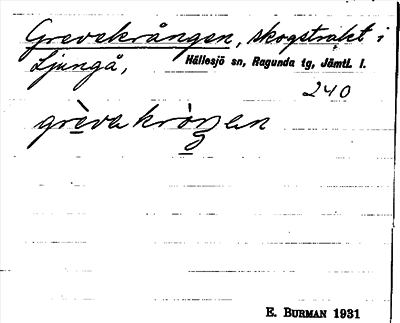 Grevakrången, skogstrakt i
Ljungå, Hällesjö sn, Ragunda tg, Jämtl. l.
240
grèvakròŋen
E. BURMAN 1931